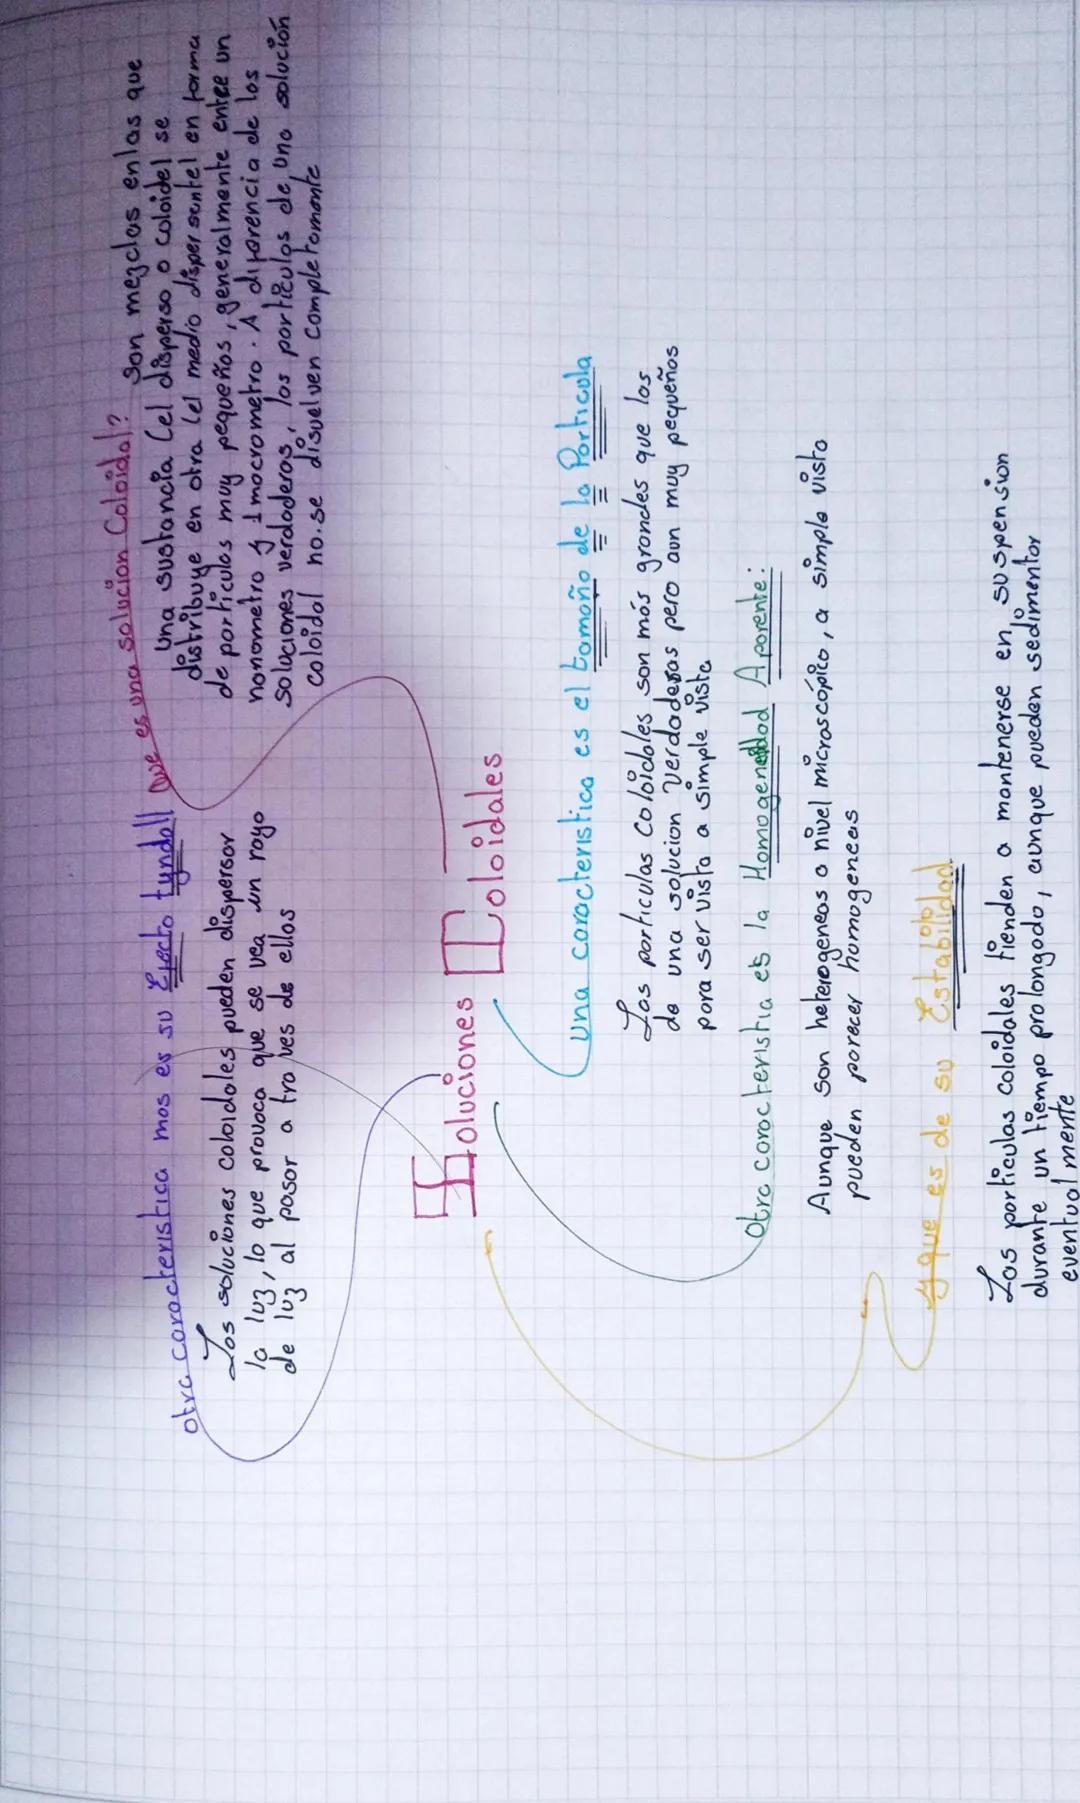 Soluciones Coloidales
Que es una solucion Coloidal?
Son mezclas en las que
una sustancia (el disperso o coloidel se
distribuye en otra (el medio dispersantel en forma
de particulas muy pequeñas, generalmente entre un
nanometro y 1 macrometro. A diferencia de las
soluciones verdaderas, las particulas de una solución
coloidal no se disuelven completamente
otra caracteristica mas es su Efecto tyndall
Las soluciones coloidales pueden dispersar
la luz, lo que provoca que se vea un rayo
de luz al pasar a traves de ellas
Una caracteristica es el tamaño de la Particula
Las particulas Coloidales son más grandes que las
de una solucion verdaderas pero aun muy pequeñas
para ser vista a simple vista
Otra caracteristia es la Homogeneidad Aparente:
Aunque son heterogeneas a nivel microscópico, a simple vista
pueden parecer homogeneas
y que es de su Estabilidad
Las particulas coloidales tienden a mantenerse en suspension
durante un tiempo prolongado, aunque pueden sedimentar
eventualmente